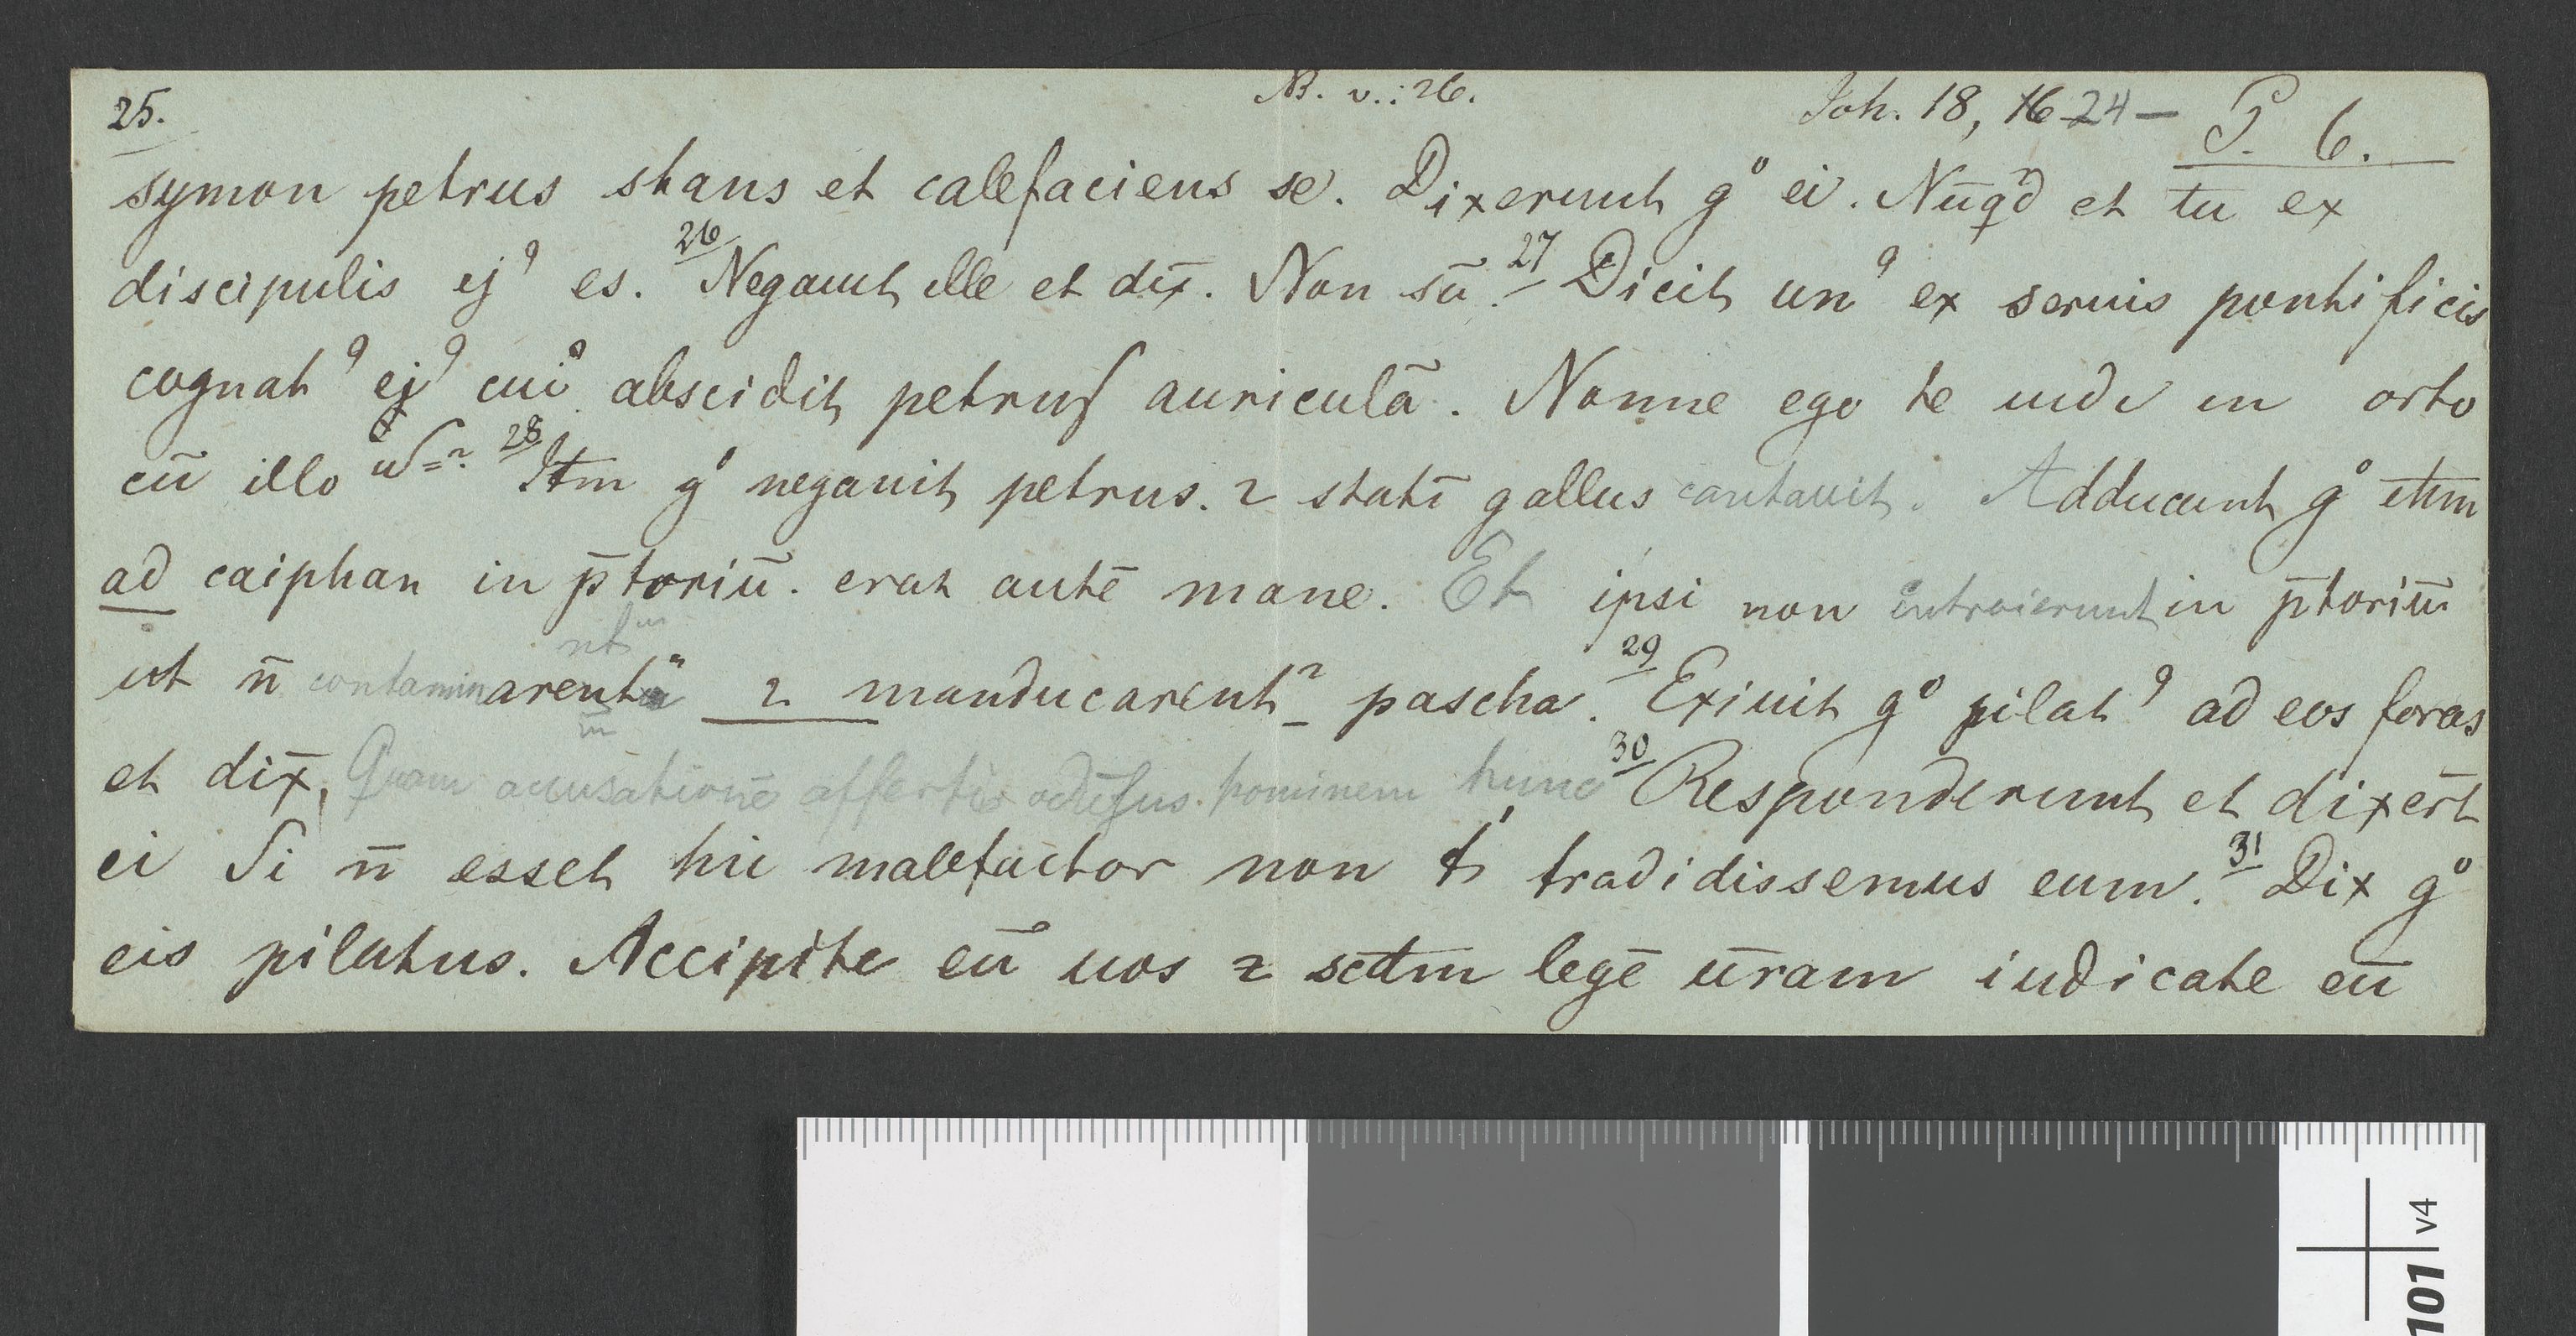 25. NB. v.: 26. Joh. 18, 16-24 — P. 6.
symon petrus stans et calefaciens se. Dixerunt g° ei. Nūqd et tu ex
discipulis ej⁹ es. 26 Negauit ille et dix̄. Non sū. 27 Dicit un⁹ ex seruis pontificis
cognat⁹ ej⁹ cui⁹ abscidit petruſ auriculā. Nonne ego te uidi in orto
cū illo 28 Itm g° negauit petrus. ⁊ statī gallus cantauit. Adducunt g°
ad caiphan in p̄toriū. erat autē mane. Et ipsi non introierunt in p̄toriū
ut n̄ contaminarent ⁊ manducarent pascha. 29 Exiuit g° pilat⁹ ad eos foras
et dix̄. Quam accusationē affertis aduſus hominem hunc 30 Responderunt et dixērt
ei Si n̄ esset hic malefactor non t' tradidissemus eum. 31 Dix g°
eis pilatus. Accipite eū uos ⁊ scdm legē ūram iudicate eū
101 v4